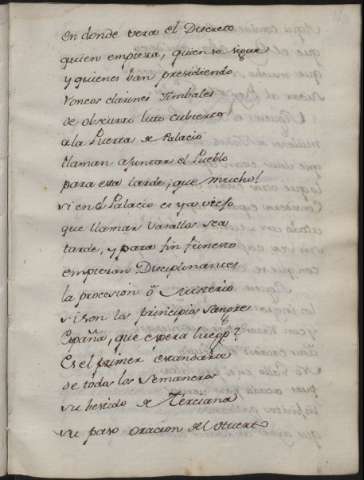 En donde vera el Discreto
quien empieza, quien se sigue
y quienes van presidiendo
Roncos clarines timbales
de obscuro luto cubierto
a la Puerta de Palacio
llaman a juntar el Pueblo
para esta tarde; que mucho!
si en el Palacio es ya uso
que llamar vasallos sea
tarde, y para fin funesto
empiezan Disciplinantes
la procesion ô Misterio
si son los principios sangre
España, que espera luego?
Es el primer estandarte
de todos los Semaneros
su bestido de Terciana
su paso oracion del Huerto